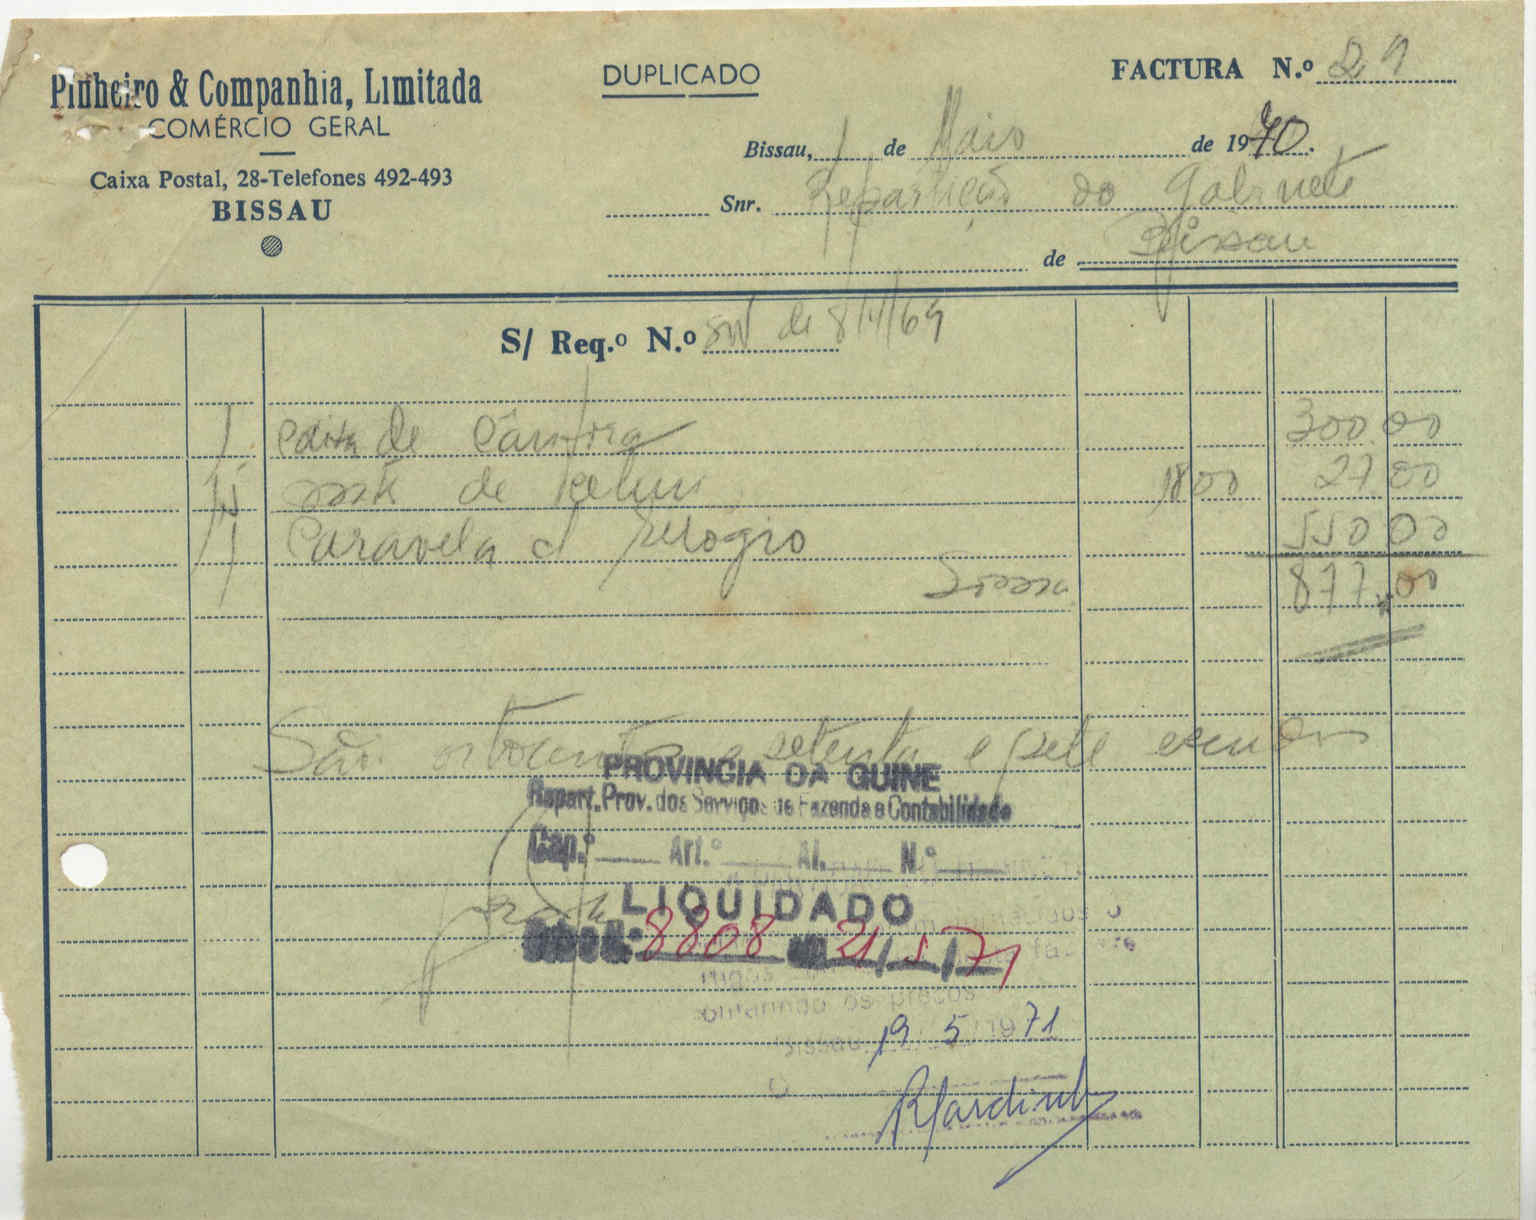 Pinheiro & Companhia, Limitada
COMÉRCIO GERAL
Caixa Postal, 28-Telefones 492-493
BISSAU
DUPLICADO
FACTURA N.º 29
Bissau, 1 de Maio de 1970.
Snr. Repartição do Gabinete
de Bissau
S/ Req.º N.º S/N de 8/4/69
1 de Cânfora 300 00
de 18 00 27 00
1 Caravela c/ relógio 550 00
Soma 877.00
São oitocentos e setenta e sete escudos
PROVINCIA DA GUINE
Repart. Prov. dos Serviços de Fazenda e Contabilidade
Cap.º Art.º Al. N.º
LIQUIDADO
8808 21/5/71
os preços
Bissau 19/5/1971
O